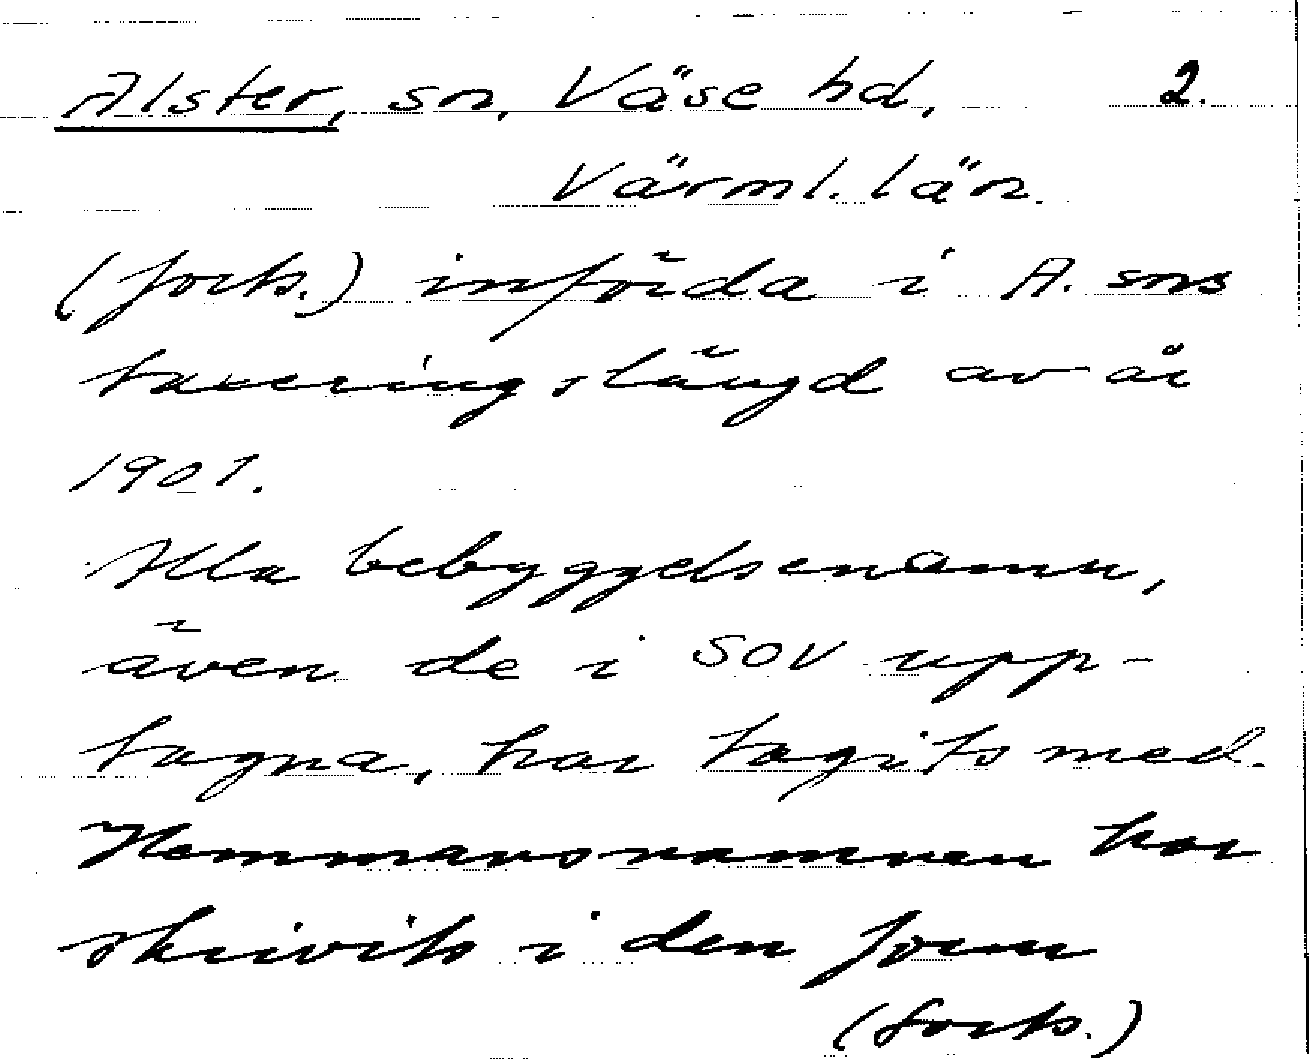 Alster, sn, Väse hd, 2.
Värml. län.
(forts.) införda i A. sns
taxeringslängd av år
1901.
Alla bebyggelsenamn,
även de i SOV upp-
tagna, har tagits med.
Hemmansnamnen har
skrivits i den form
(forts.)